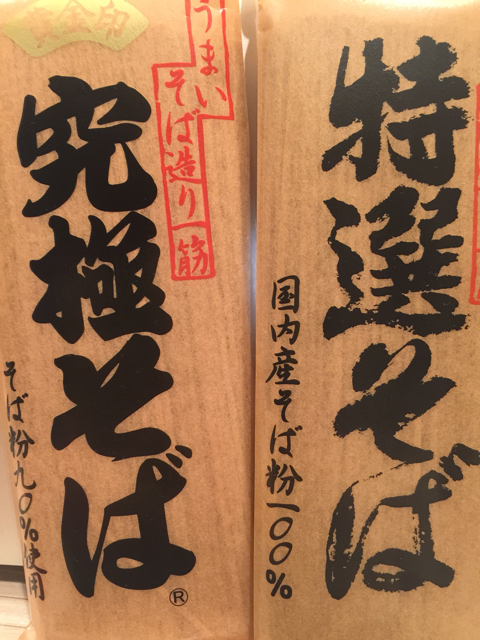 黄金印
うまい
そば造り一筋
究極そば
®
そば粉九〇%使用
特選そば
国内産そば粉一〇〇%